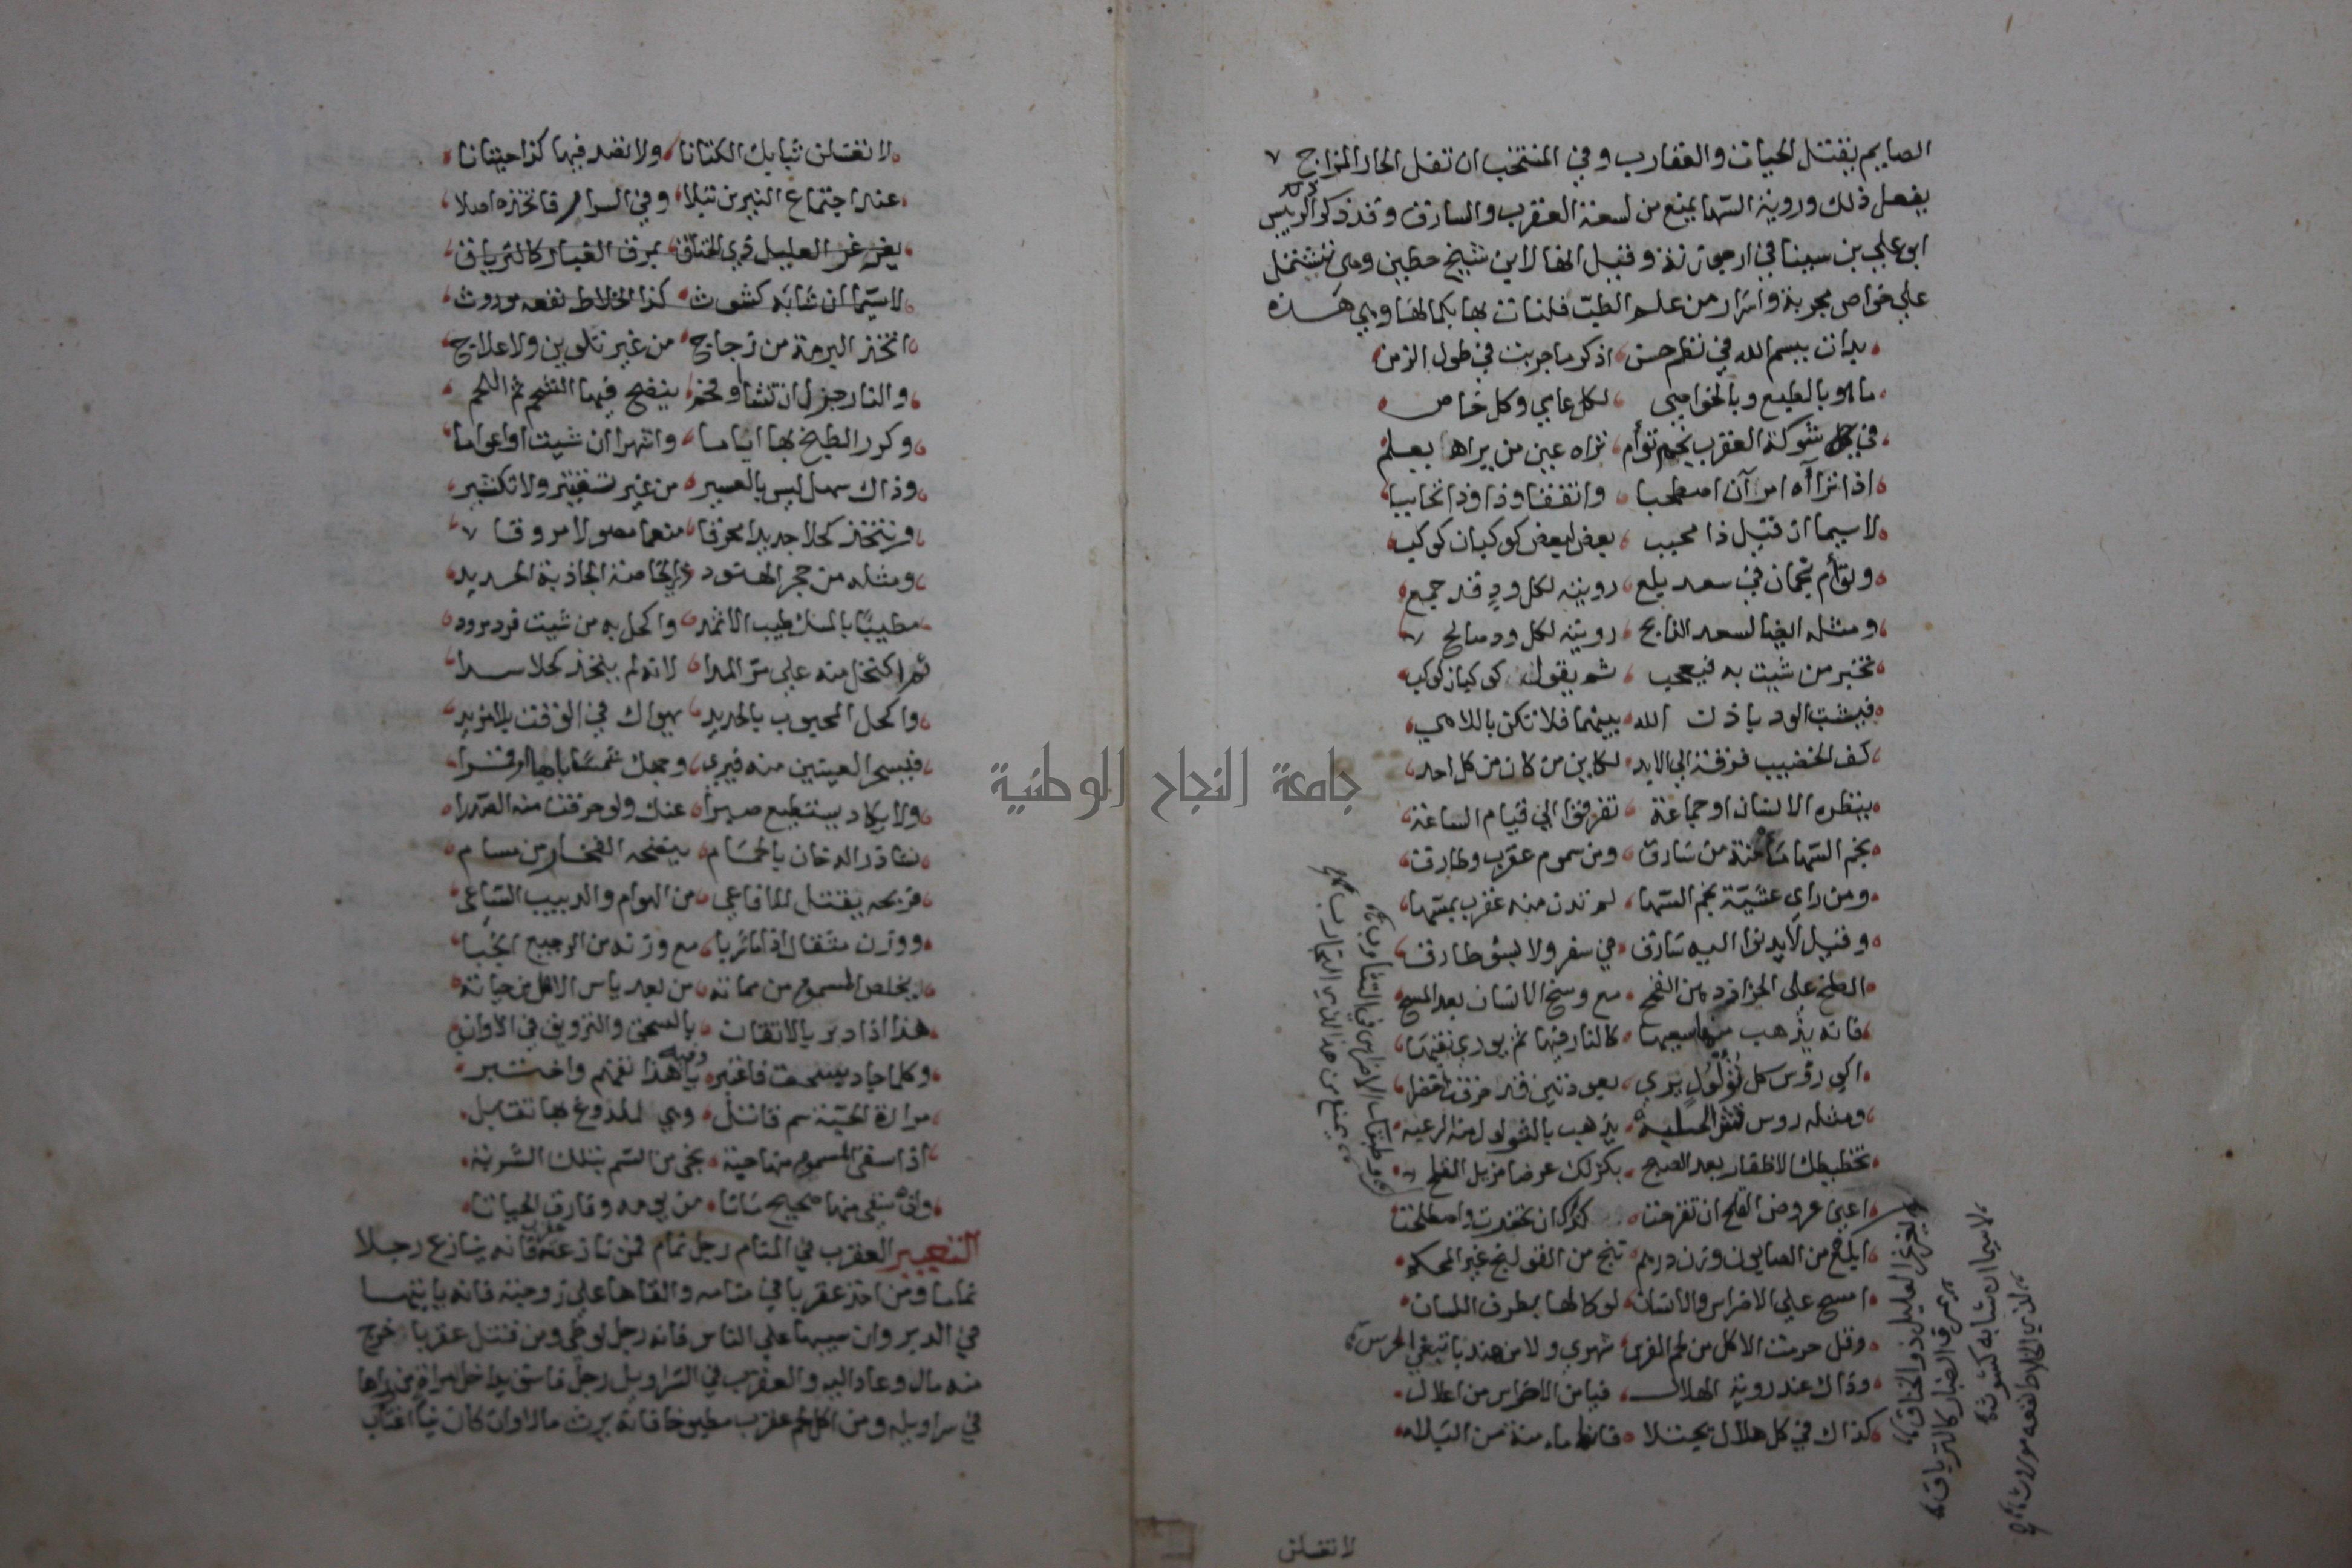 الصايم يقتل الحيات والعقارب وفي المنتخب ان تفل الحار المزاج
يفعل ذلك وروية السها يمنع من لسعة العقرب والسارق وقد ذكر الريس
ابو علي بن سينا في ارجوزته وقيل انها لابن شيخ حطين وهي تشتمل
علي خواص مجربة واسرار من علم الطب فلنات بها بكمالها وهي هذه
بدات ببسم الله في نظم حسن اذكر ما جربت في طول الزمن
ما هو بالطبع وبالخواص لكل عامي وكل خاص
في شوكة العقرب نجم توأم تراه عين من يراها يعلم
اذا تراآه امرآن اصطحبا واتفقا وذا وذا تحاببا
لا سيما ان قيل ذا محبب بعض لبعض كوكبان كوكب
وتوأم نجمان في سعد بلع رويته لكل ود قد جمع
ومثله ايضا لسعد الذابح رويته لكل ود صالح
تخبر من شيت به فيعجب ثم يقول كوكبان كوكب
فيثبت الود باذن الله بينهما فلا تكن باللاهي
كف الخضيب فرقة الي الابد لكاين من كان من كل احد
ينظره الانسان او جماعة تفرقوا الي قيام الساعة
نجم السها مأمنة من سارق ومن سموم عقرب وطارق
ومن راي عشية نجم السها لم تدن منه عقرب يمسها
وقيل لا يدنوا اليه سارق في سفر ولا بسؤ طارق
الطخ علي الحزاز دهن القمح مع وسخ الاسنان بعد المسح
فانه يذهب كالنار فيها ثم يوري نفيها
اكوي رؤس كل ثؤلول يري بعود تين قد حرقت اخضرا
ومثله روس يذهب بالثولول منه الرعيه
تخطيطك الاظفار بعد الصبح بكزلك عرضا مزيل القلح
اعني عروض القلح ان تفرحت كذاك ان تحفرت واصطلحت
ابلع من الصابون وزن درهم تنج من القولنج غير المحكم
امسح علي الاضراس والاسنان لوكالها بطرف اللسان
وقل حرمت الاكل من لحم الفرس شهري ولا من هندبا تبغي الحرس
وذاك عند روية الهلال فيامن الاضراس من اعلال
كذاك في كل هلال يجتلا فانها مامنة من البلا
وطبك الاضراس في التثاوب
يمنع من هذا لذي التجارب
يغرغر العليل ذو الخناق
بمرق الضبار كالترياق
لاسيما ان شابه كشوث
لذي الخلاط نفعه موروث
لا تغسلن
لا تغسلن ثيابك الكتانا ولا تصد فيها كذا حيتانا
عند اجتماع النيرين تبلا وفي السرار فاتخذه اصلا
يغرغر العليل ذي الخناق بمرق الضبار كالترياق
لاسيما ان شابه كشوث كذا الخلاط نفعه موروث
اتخذ البرمة من زجاج من غير تلوين ولا علاج
والنار جزل ان تشا او فحم ينضج فيها الشحم ثم اللحم
وكرر الطبخ بها اياما وانهرا ان شيت او اعواما
وذاك سهل ليس بالعسير من غير تقتير ولا تكثير
منعما مصولا مروقا
ومثله من حجر الهنود ذي الخاصة الجاذبة الحديد
مطيبا بالمسك طيب الاثمد واكحل به من شيت فرد مرود
ثم اكتحل منه علي مر المدا لانه لم يتخذ كحلا سدا
واكحل المحبوب بالحديد يهواك في الوقت بلا مزيد
فيسحر العينين منه فيري وجهك شمسا باهيا او قمرا
ولا يكاد يستطيع صبرا عنك ولو حرقت منه الصدرا
نشادر الدخان بالحمام ينضجه الفخار من مسام
فريحه يقتل للافاعي من الهوام والدبيب الساعي
ووزن مثقال اذا ما شربا مع وزنه من الرجيع انجبا
يخلص المسموم من مماته من بعد ياس الاهل من حياته
هذا اذا دبر بالاتقان بالسحق والترويق في الاوان
وكلما جاد بسحق فاعتبر يا هذا نفعهم واختبر
مرارة الحية سم قاتل وهي لملدوغ بها تقابل
اذا سقي المسموم منها حبة نجي من السم بتلك الشربة
وان سقي منها صحيح ماتا من يومه وفارق الحياتا
التعبير العقرب في المنام رجل نمام فمن نازعته عقرب فانه ينازع رجلا
نماما ومن اخذ عقربا في منامه والقاها علي زوجته فانه ياتيها
في الدبر وان سيبها علي الناس فانه رجل لوطي ومن قتل عقربا خرج
منه مال وعاد اليه والعقرب في السراويل رجل فاسق يداخل امراة من راها
في سراويله ومن اكل لحم عقرب مطبوخا فانه يرث مالا وان كان نيا اغتاب